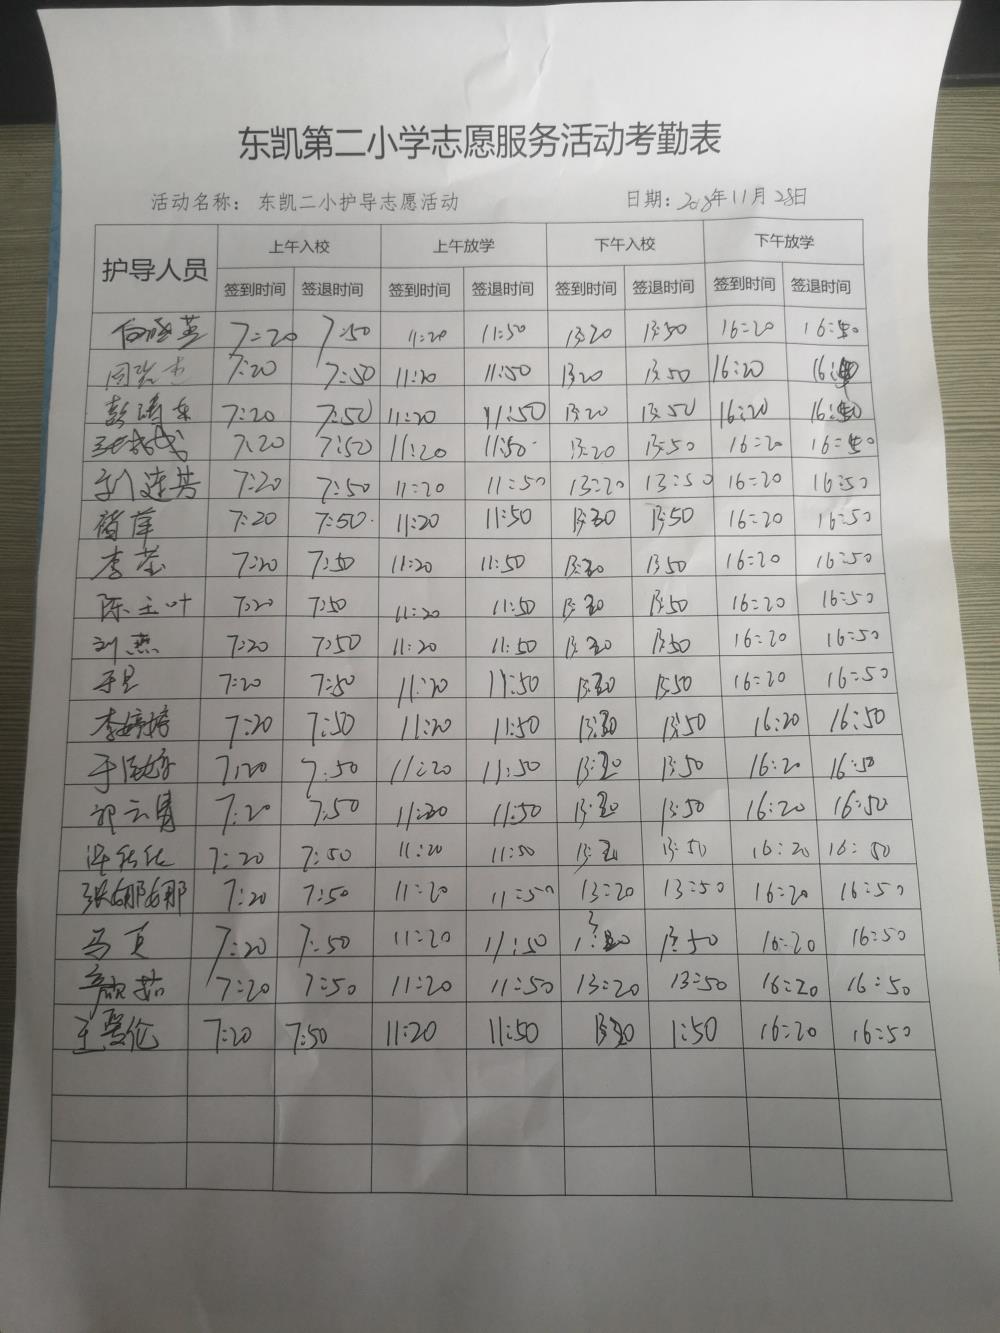 东凯第二小学志愿服务活动考勤表
活动名称： 东凯二小护导志愿活动 日期：2018年11月28日
护导人员 上午入校 上午放学 下午入校 下午放学
签到时间 签退时间 签到时间 签退时间 签到时间 签退时间 签到时间 签退时间
7:20 7:50 11:20 11:50 13:20 13:50 16:20 16:50
7:20 7:50 11:20 11:50 13:20 13:50 16:20 16:50
7:20 7:50 11:20 11:50 13:20 13:50 16:20 16:50
7:20 7:50 11:20 11:50 13:20 13:50 16:20 16:50
7:20 7:50 11:20 11:50 13:20 13:50 16:20 16:50
褚萍 7:20 7:50 11:20 11:50 13:20 13:50 16:20 16:50
李莹 7:20 7:50 11:20 11:50 13:20 13:50 16:20 16:50
陈玉叶 7:20 7:50 11:20 11:50 13:20 13:50 16:20 16:50
刘燕 7:20 7:50 11:20 11:50 13:20 13:50 16:20 16:50
于昆 7:20 7:50 11:20 11:50 13:20 13:50 16:20 16:50
李婷婷 7:20 7:50 11:20 11:50 13:20 13:50 16:20 16:50
7:20 7:50 11:20 11:50 13:20 13:50 16:20 16:50
7:20 7:50 11:20 11:50 13:20 13:50 16:20 16:50
7:20 7:50 11:20 11:50 13:20 13:50 16:20 16:50
张娜娜 7:20 7:50 11:20 11:50 13:20 13:50 16:20 16:50
7:20 7:50 11:20 11:50 13:20 13:50 16:20 16:50
7:20 7:50 11:20 11:50 13:20 13:50 16:20 16:50
王曼伦 7:20 7:50 11:20 11:50 13:20 1:50 16:20 16:50